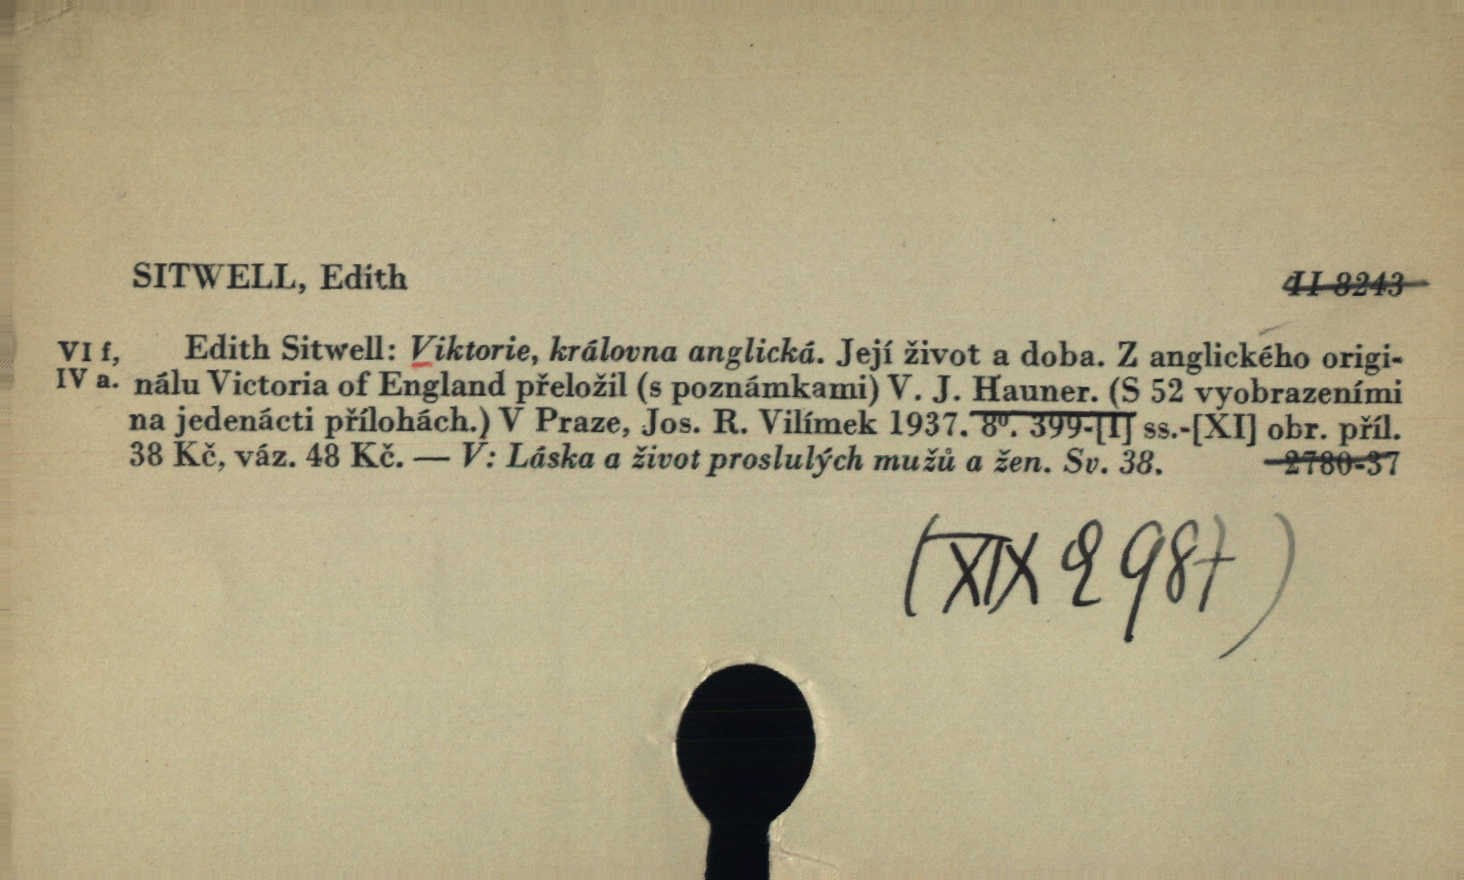 SITWELL, Edith II 8243
VI f, Edith Sitwell: Viktorie, královna anglická. Její život a doba. Z anglického origi-
IV a. nálu Victoria of England přeložil (s poznámkami) V. J. Hauner. (S 52 vyobrazeními
na jedenácti přílohách.) V Praze, Jos. R. Vilímek 1937. 8⁰. 399-[I] ss.-[XI] obr. příl.
38 Kč, váz. 48 Kč. — V: Láska a život proslulých mužů a žen. Sv. 38. 2780-37
(XIX 2 987)